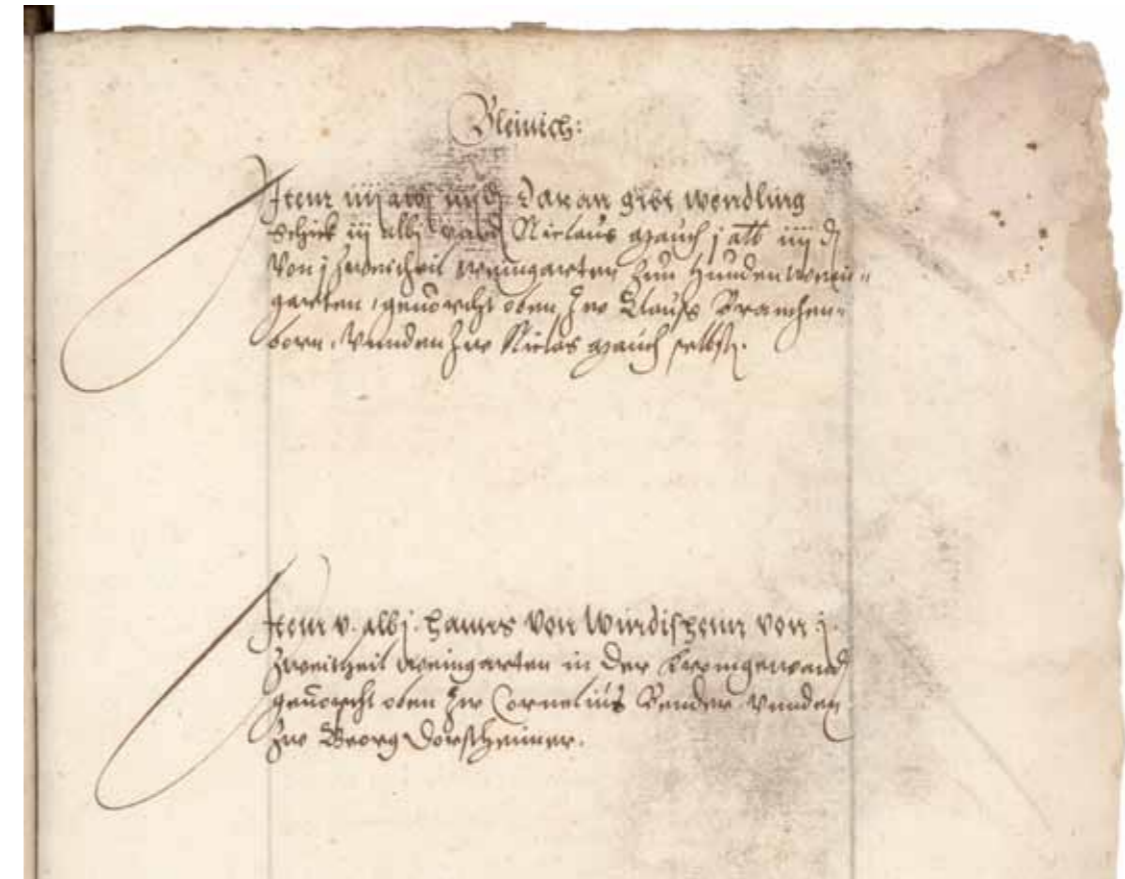 Item iiij albj iiij ₰ daran gibt wendling
Schick iij albj vnnd Niclaus Mauch j alb iiij ₰
Von j zweitheil weingarten zum Hunden wein=
garten, gevorcht oben zw Clauß
born, Vnnden zw Niclas Mauch selbst.
Item v. albj. Hanns von Windißheim von j.
zweitheil weingarten in der
gevorcht oben zw Cornelius Bender Vnnden
zw Georg Dorscheimer.